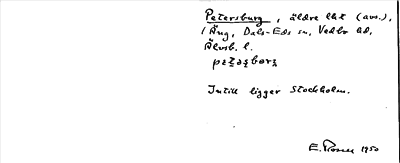 Petersburg, äldre lht (avs.),
i Äng, Dals-Eds sn, Vedbo hd,
Älvsb. l.
Intill ligger Stockholm.
E. 1950